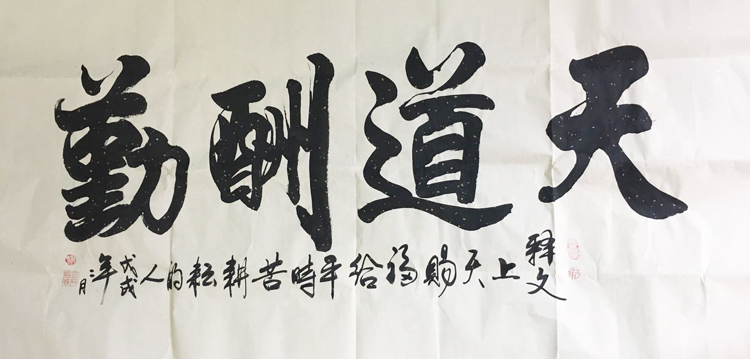 天道酬勤
释文
上天赐福给平時苦耕耘的人
戊戌
年
月